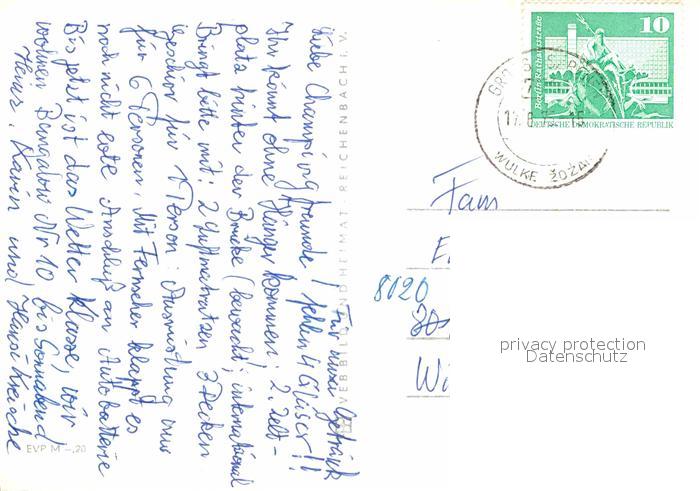 Liebe Campingfreunde!
Ihr könnt ohne Hänger kommen! 2. Zelt-
platz hinter der Brücke (bewacht, international
Bringt bitte mit: 2 Luftmatratzen 3 Decken
Geschirr für 1 Person. Ausrüstung nur
für 6 Personen. Mit Fernseher klappt es
noch nicht Anschluß an Autobatterie
Bis jetzt ist das Wetter Klasse, wir
wohnen Bungalow Nr 10 bis Sonnabend
Hans, Karin und
Für unser Getränk
fehlen 4 Gläser!!
VEB BILD UND HEIMAT · REICHENBACH I. V.
EVP M -,20
10
Berlin, Rathausstraße
DEUTSCHE DEMOKRATISCHE REPUBLIK
WULKE ŽDŽAR
Fam
8020
Wi
privacy protection
Datenschutz